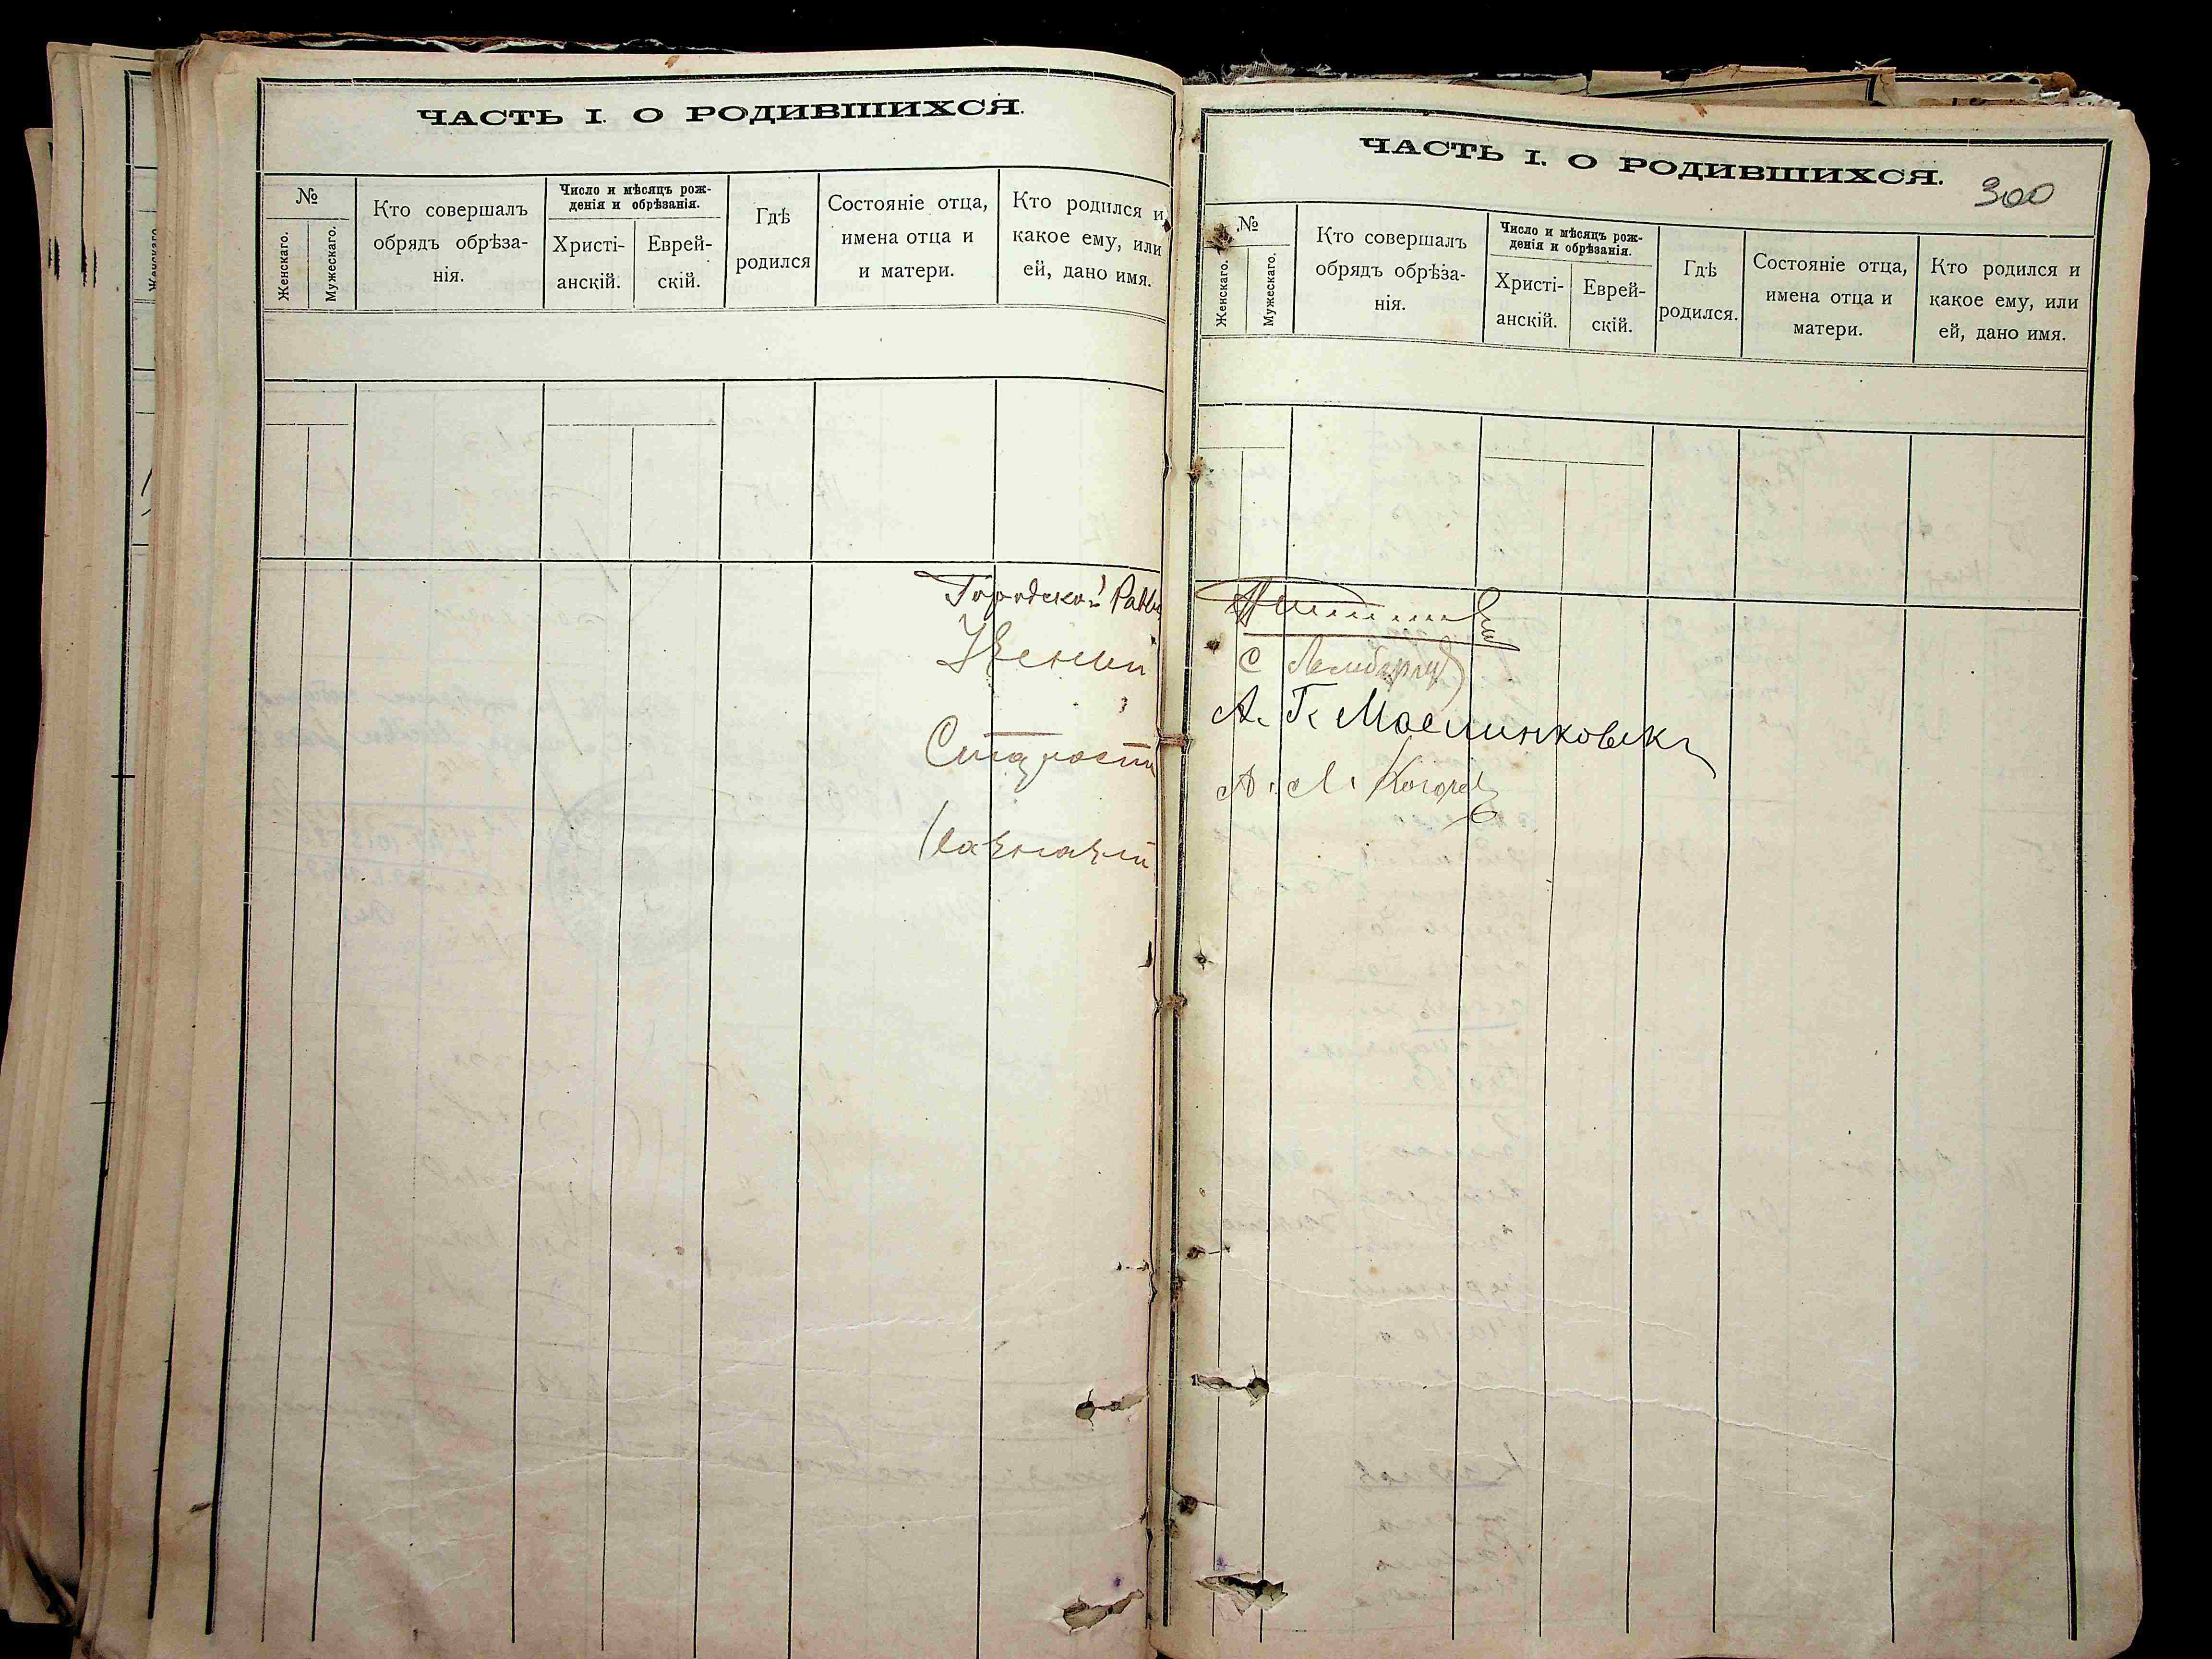 ЧАСТЬ I. О РОДИВШИХСЯ.
№
Женскаго.
Мужескаго.
Кто совершалъ
обрядъ обрѣза-
нія.
Число и мѣсяцъ рож-
денія и обрѣзанія.
Христі-
анскій.
Еврей-
скій.
Гдѣ
родился
Состояніе отца,
имена отца и
и матери.
Кто родился и
какое ему, или
ей, дано имя.
Городской Равви
Ученый
Староста
Казначей
ЧАСТЬ I. О РОДИВШИХСЯ.
300
№
Женскаго.
Мужескаго.
Кто совершалъ
обрядъ обрѣза-
нія.
Число и мѣсяцъ рож-
денія и обрѣзанія.
Христі-
анскій.
Еврей-
скій.
Гдѣ
родился.
Состояніе отца,
имена отца и
матери.
Кто родился и
какое ему, или
ей, дано имя.
С
А. Г. Маслинковск
А. Л.